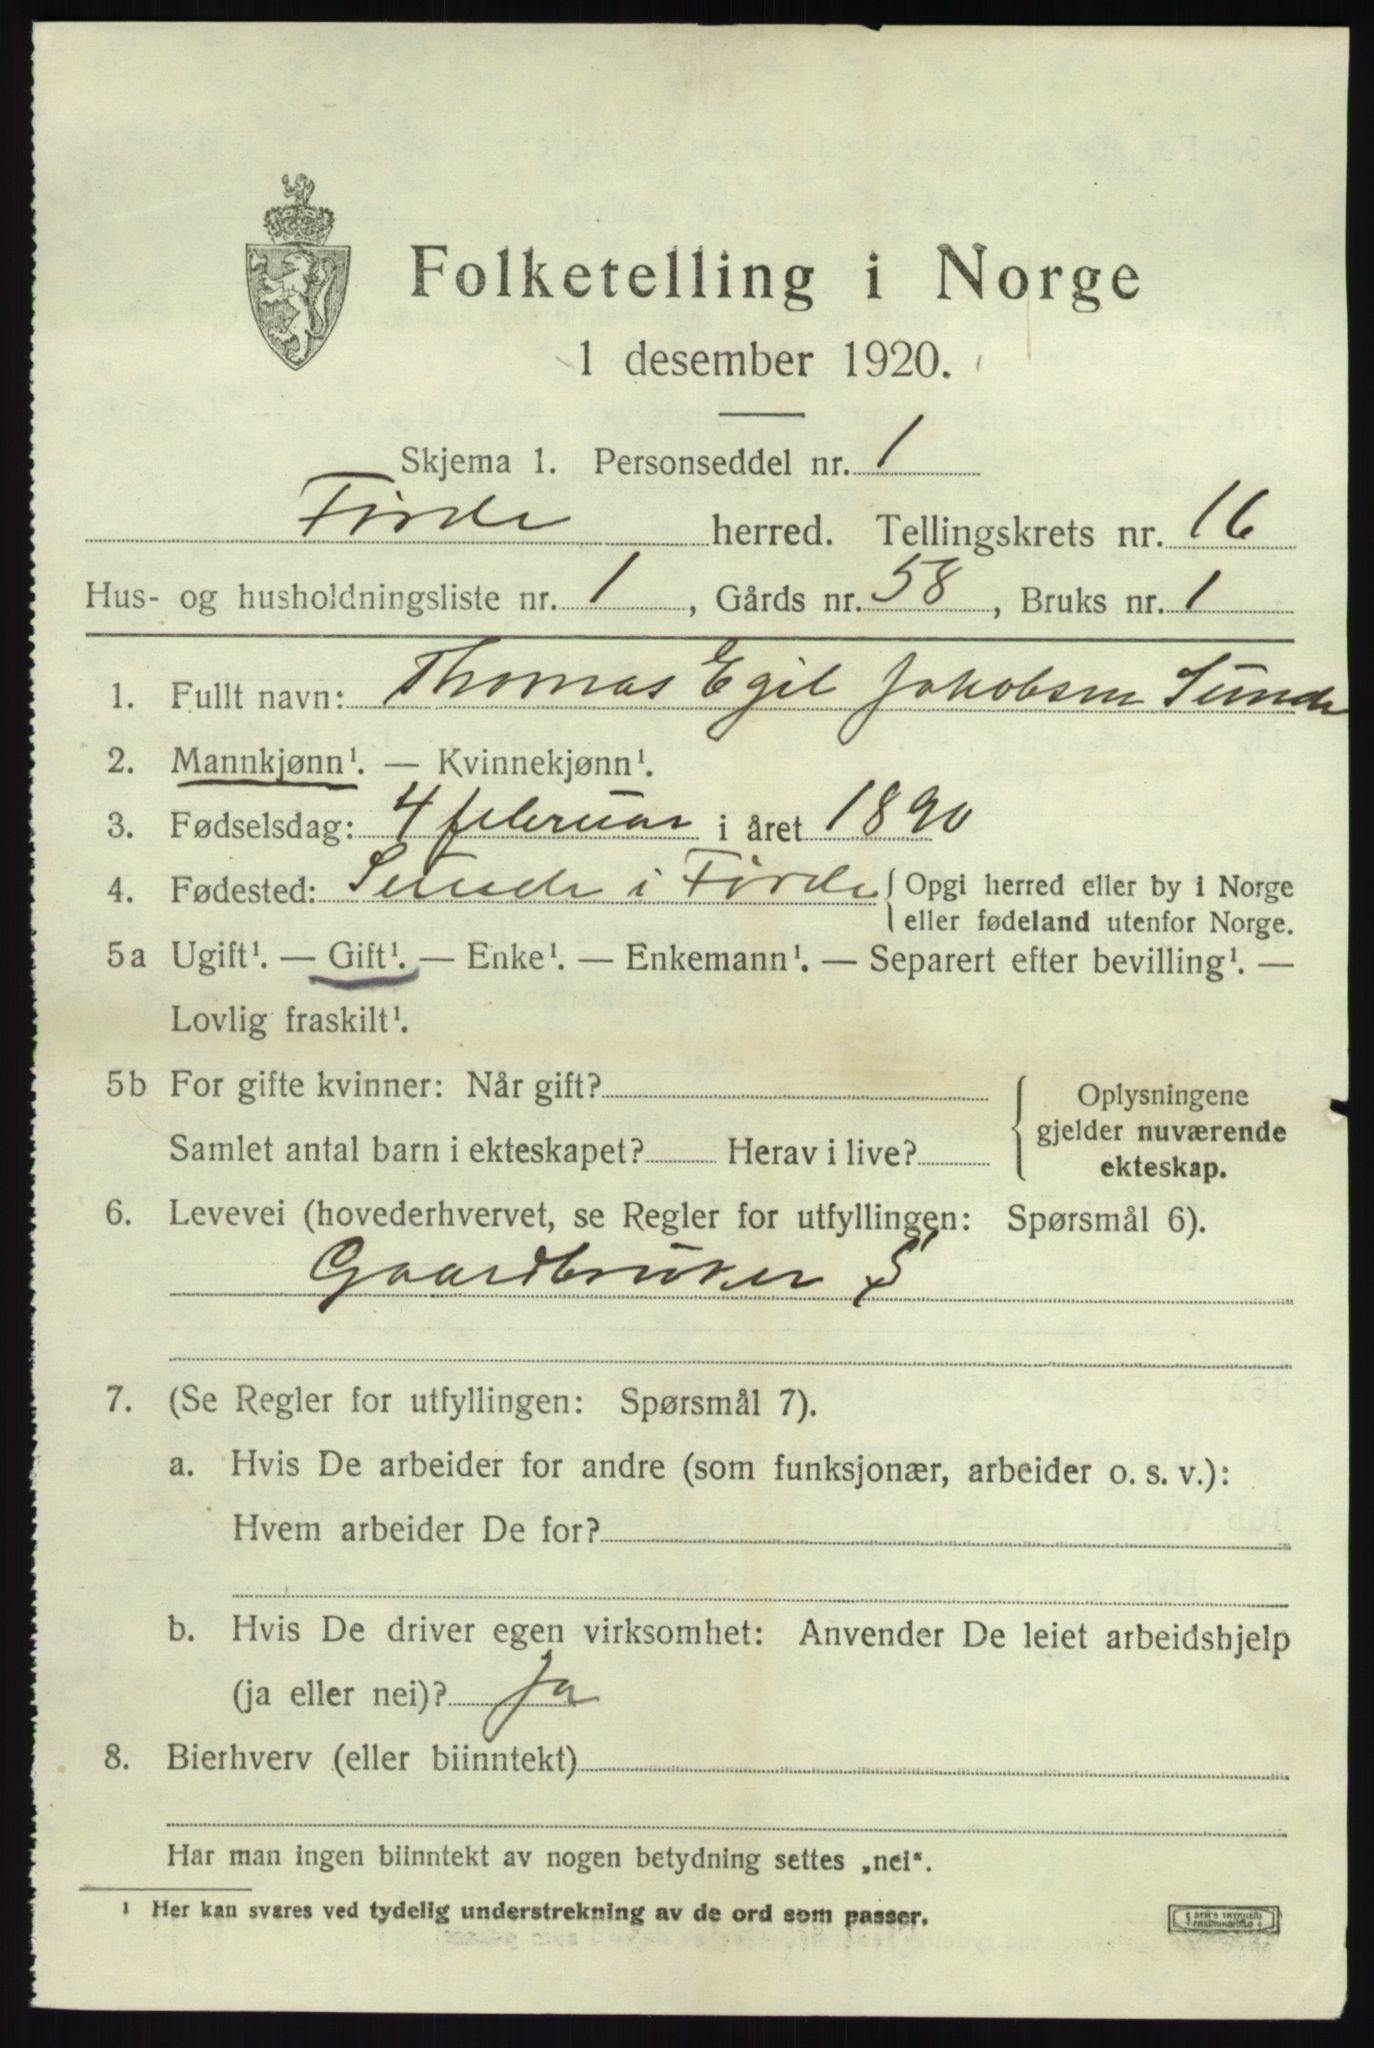 Folketelling i Norge
1 desember 1920.
Skjema 1. Personseddel nr. 1
Førde herred. Tellingskrets nr. 16
Hus- og husholdningsliste nr. 1, Gårds nr. 58, Bruks nr. 1
1. Fullt navn: Thomas Egil Jakobsen Sunde
2. Mannkjønn¹. — Kvinnekjønn¹.
3. Fødselsdag: 4 februar i året 1890
4. Fødested: Sunde i Førde { Opgi herred eller by i Norge
eller fødeland utenfor Norge.
5a Ugift¹. — Gift¹. — Enke¹. — Enkemann¹. — Separert efter bevilling¹. —
Lovlig fraskilt¹.
5b For gifte kvinner: Når gift?
Samlet antal barn i ekteskapet? Herav i live?
Oplysningene
gjelder nuværende
ekteskap.
6. Levevei (hovederhvervet, se Regler for utfyllingen: Spørsmål 6).
Gaardbruker S
7. (Se Regler for utfyllingen: Spørsmål 7).
a. Hvis De arbeider for andre (som funksjonær, arbeider o. s. v.):
Hvem arbeider De for?
b. Hvis De driver egen virksomhet: Anvender De leiet arbeidshjelp
(ja eller nei)? Ja
8. Bierhverv (eller biinntekt)
Har man ingen biinntekt av nogen betydning settes „nei“.
¹ Her kan svares ved tydelig understrekning av de ord som passer.